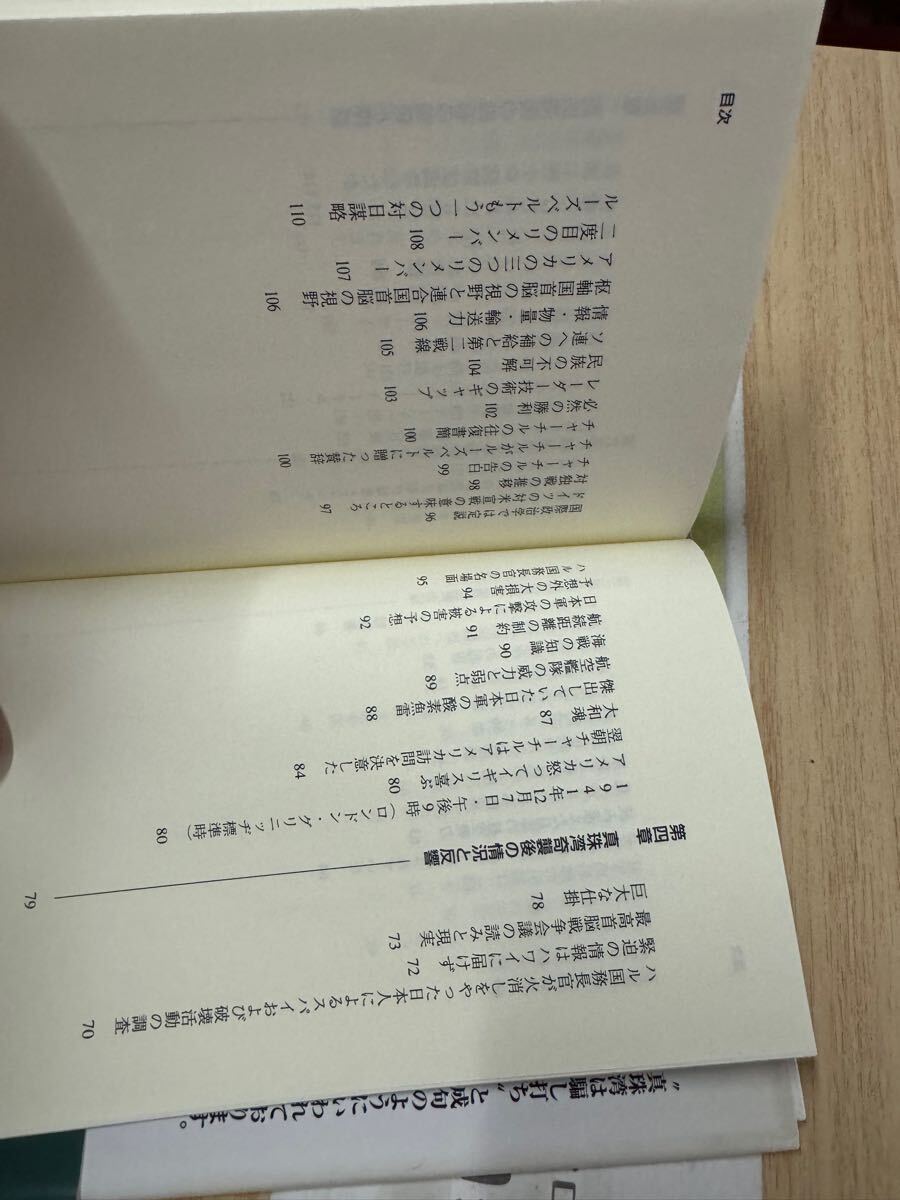 ハル国務長官が火消しをやった日本人によるスパイおよび破壊活動の調査 70
緊迫の情報はハワイに届けず 72
最高首脳戦争会議の読みと現実 73
巨大な仕掛 78
第四章 真珠湾奇襲後の情況と反響 79
1941年12月7日・午後9時(ロンドン・グリニッヂ標準時) 80
アメリカ怒ってイギリス喜ぶ 80
翌朝チャーチルはアメリカ訪問を決意した 84
大和魂 87
傑出していた日本軍の酸素魚雷 88
航空艦隊の威力と弱点 89
海戦の知識 90
航続距離の制約 91
日本軍の攻撃による被害の予想 92
予想外の大損害 94
ハル国務長官の名場面 95
国際政治学では定説 96
ドイツの対米宣戦の意味するところ 97
対独戦の推移 98
チャーチルの告白 99
チャーチルがルーズベルトに贈った賛辞 100
チャーチルの往復書簡 100
必然の勝利 102
レーダー技術のギャップ 103
民族の不可解 104
ソ連への補給と第二戦線 105
情報・物量・輸送力 106
枢軸国首脳の視野と連合国首脳の視野 106
アメリカの三つのリメンバー 107
二度目のリメンバー 108
ルーズベルトもう一つの対日謀略 110
目次
“真珠湾は騙し打ち”と成句のようにいわれております。